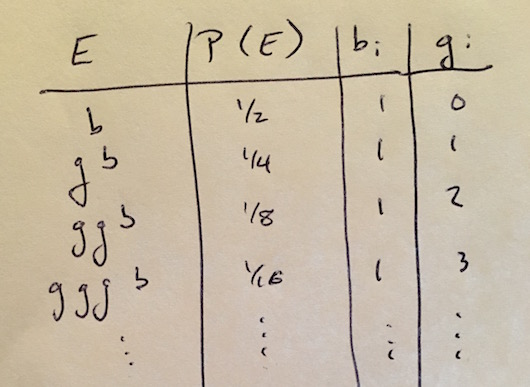 E P(E) bi gi
b 1/2 1 0
gb 1/4 1 1
ggb 1/8 1 2
gggb 1/16 1 3
⋮ ⋮ ⋮ ⋮